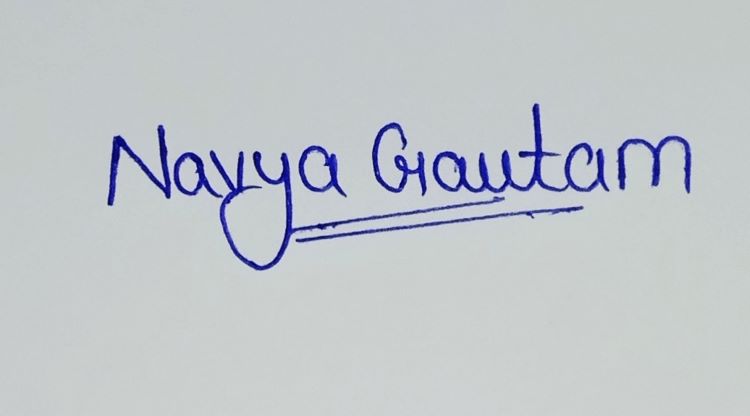 Navya Gautam